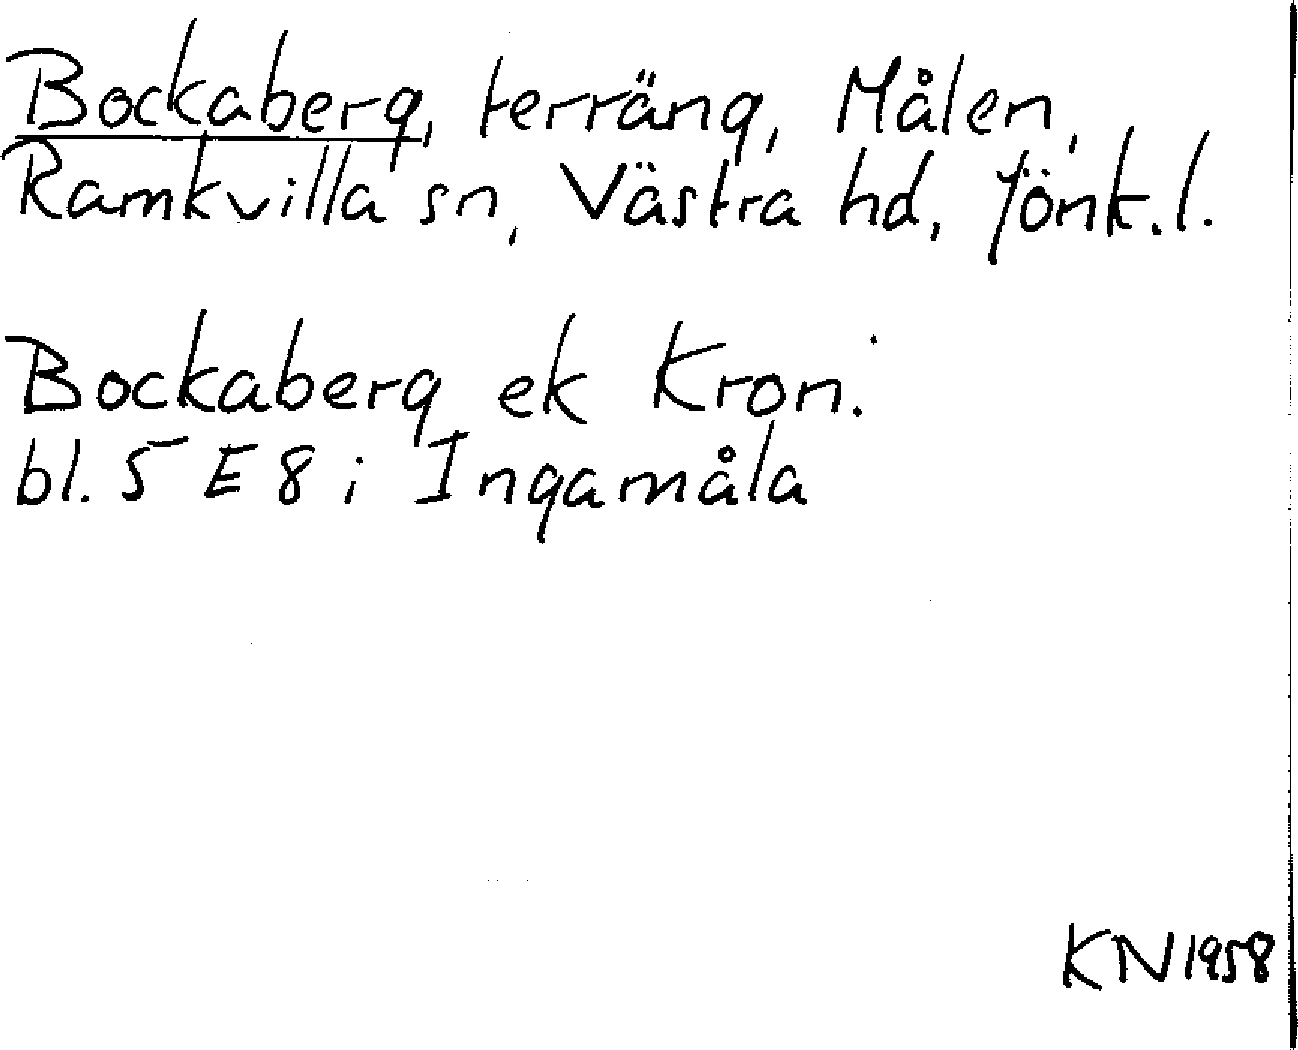 Bockaberg, terräng, Målen,
Ramkvilla sn, Västra hd, Jönk.l.
Bockaberg ek Kron.
bl. 5 E 8 i Ingamåla
KN 1958